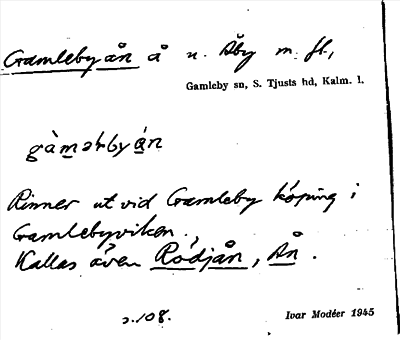 Gamlebyån å n. Åby m. fl.,
Gamleby sn, S. Tjusts hd, Kalm. l.
gàməlbyán
Rinner ut vid Gamleby köping i
Gamlebyviken.
Kallas även Rödjån, Ån.
s. 108.
Ivar Modéer 1945